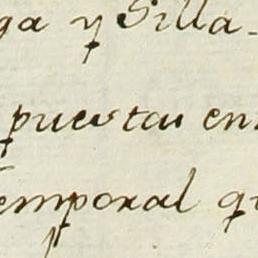 ga y Silla-
puestas en
temporal qu